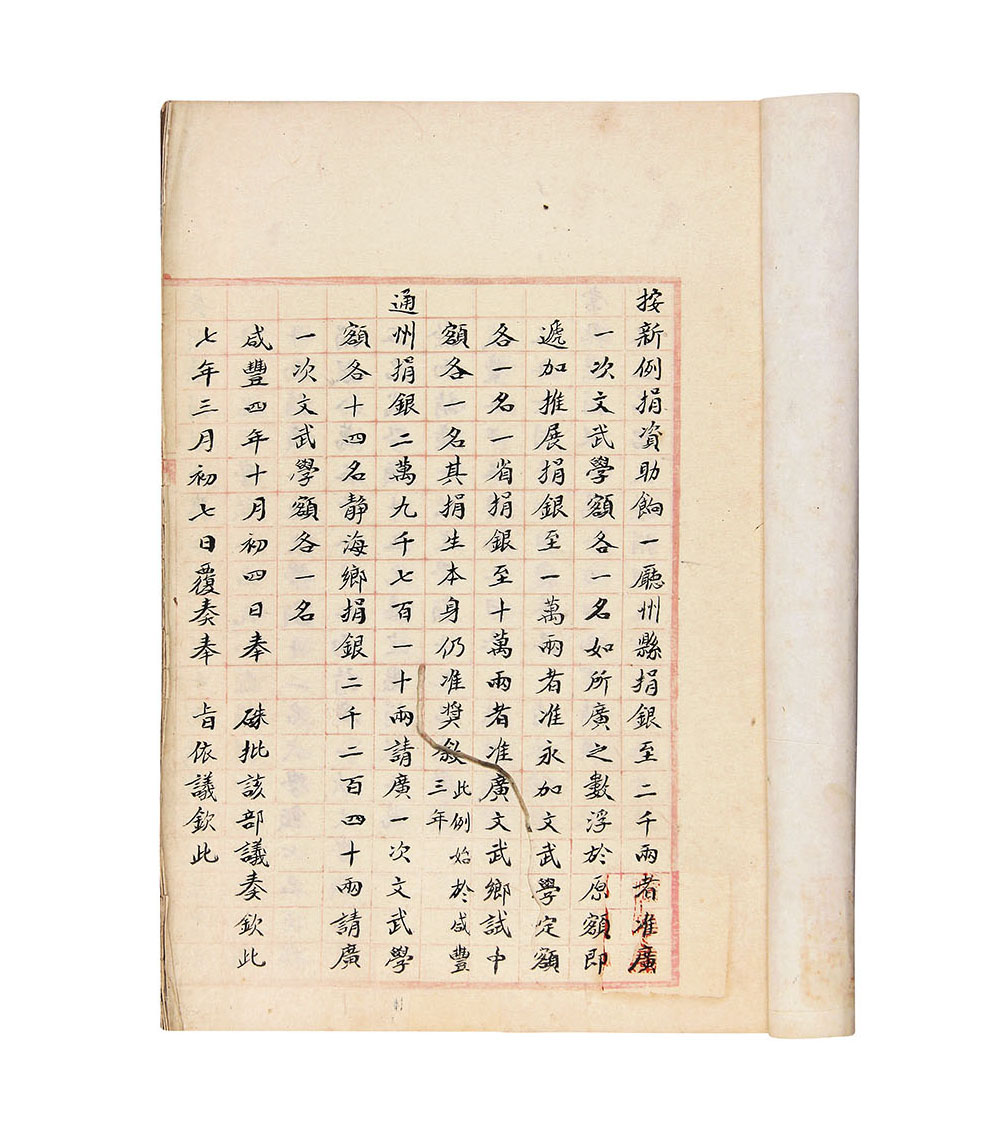 按新例捐資助餉一廳州縣捐銀至二千兩者准廣
一次文武學額各一名如所廣之數浮於原額即
遞加推展捐銀至一萬兩者准永加文武學定額
各一名一省捐銀至十萬兩者准廣文武鄉試中
額各一名其捐生本身仍准奬敘此例始於咸豐三年
通州捐銀二萬九千七百一十兩請廣一次文武學
額各十四名静海鄉捐銀二千二百四十兩請廣
一次文武學額各一名
咸豐四年十月初四日奉 硃批該部議奏欽此
七年三月初七日覆奏奉 旨依議欽此